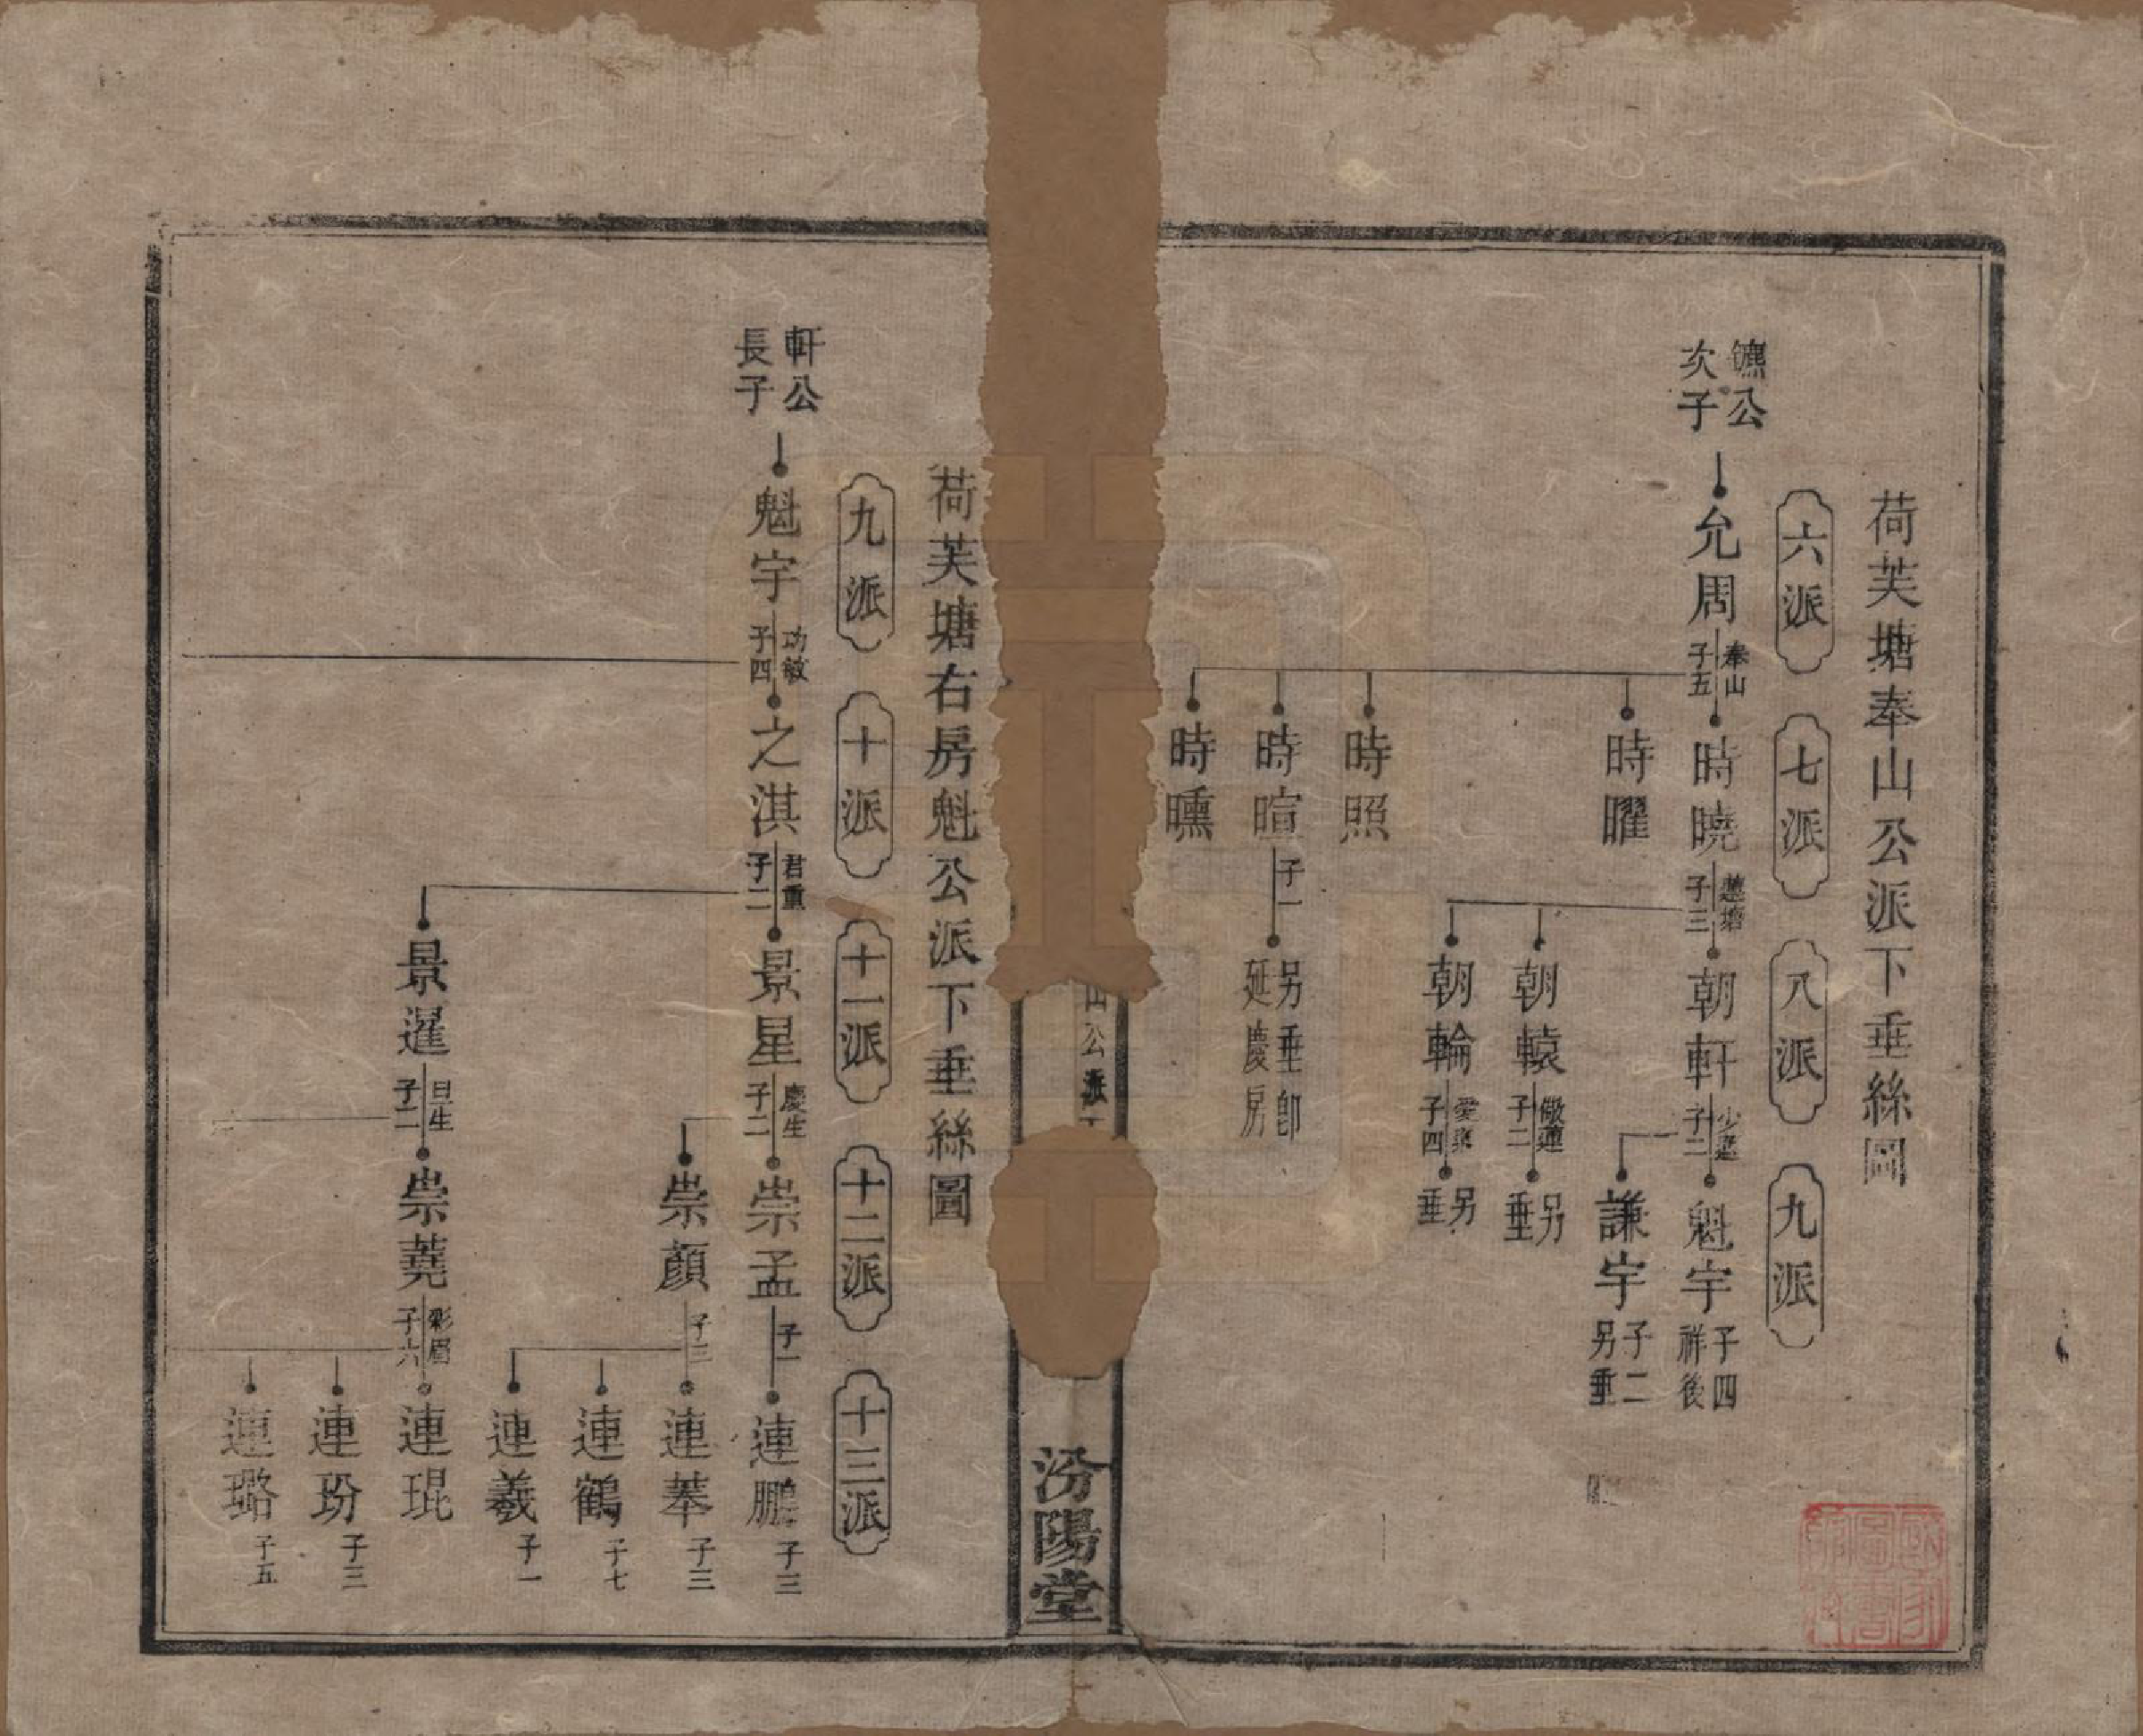 荷芙塘奉山公派下垂絲圖
六派
七派
八派
九派
鑣公
次子
允周
奉山
子五
時曉
蓮塘
子三
朝軒
子二
魁宇
子四
祥後
謙宇
子二
另垂
時曜
朝轅
子二
另垂
朝輪
子四
另垂
時照
時暄
子一
另垂即
延慶房
時曛
山公派下
汾陽堂
荷芙塘右房魁公派下垂絲圖
九派
十派
十一派
十二派
十三派
軒公
長子
魁宇
功敏
子四
之淇
君重
子二
景星
慶生
子二
崇孟
子一
連鵬
子三
崇顏
子三
連萃
子三
連鶴
子七
連羲
子一
景暹
旦生
子二
崇蕘
彩眉
子六
連琨
連玢
子三
連璐
子五